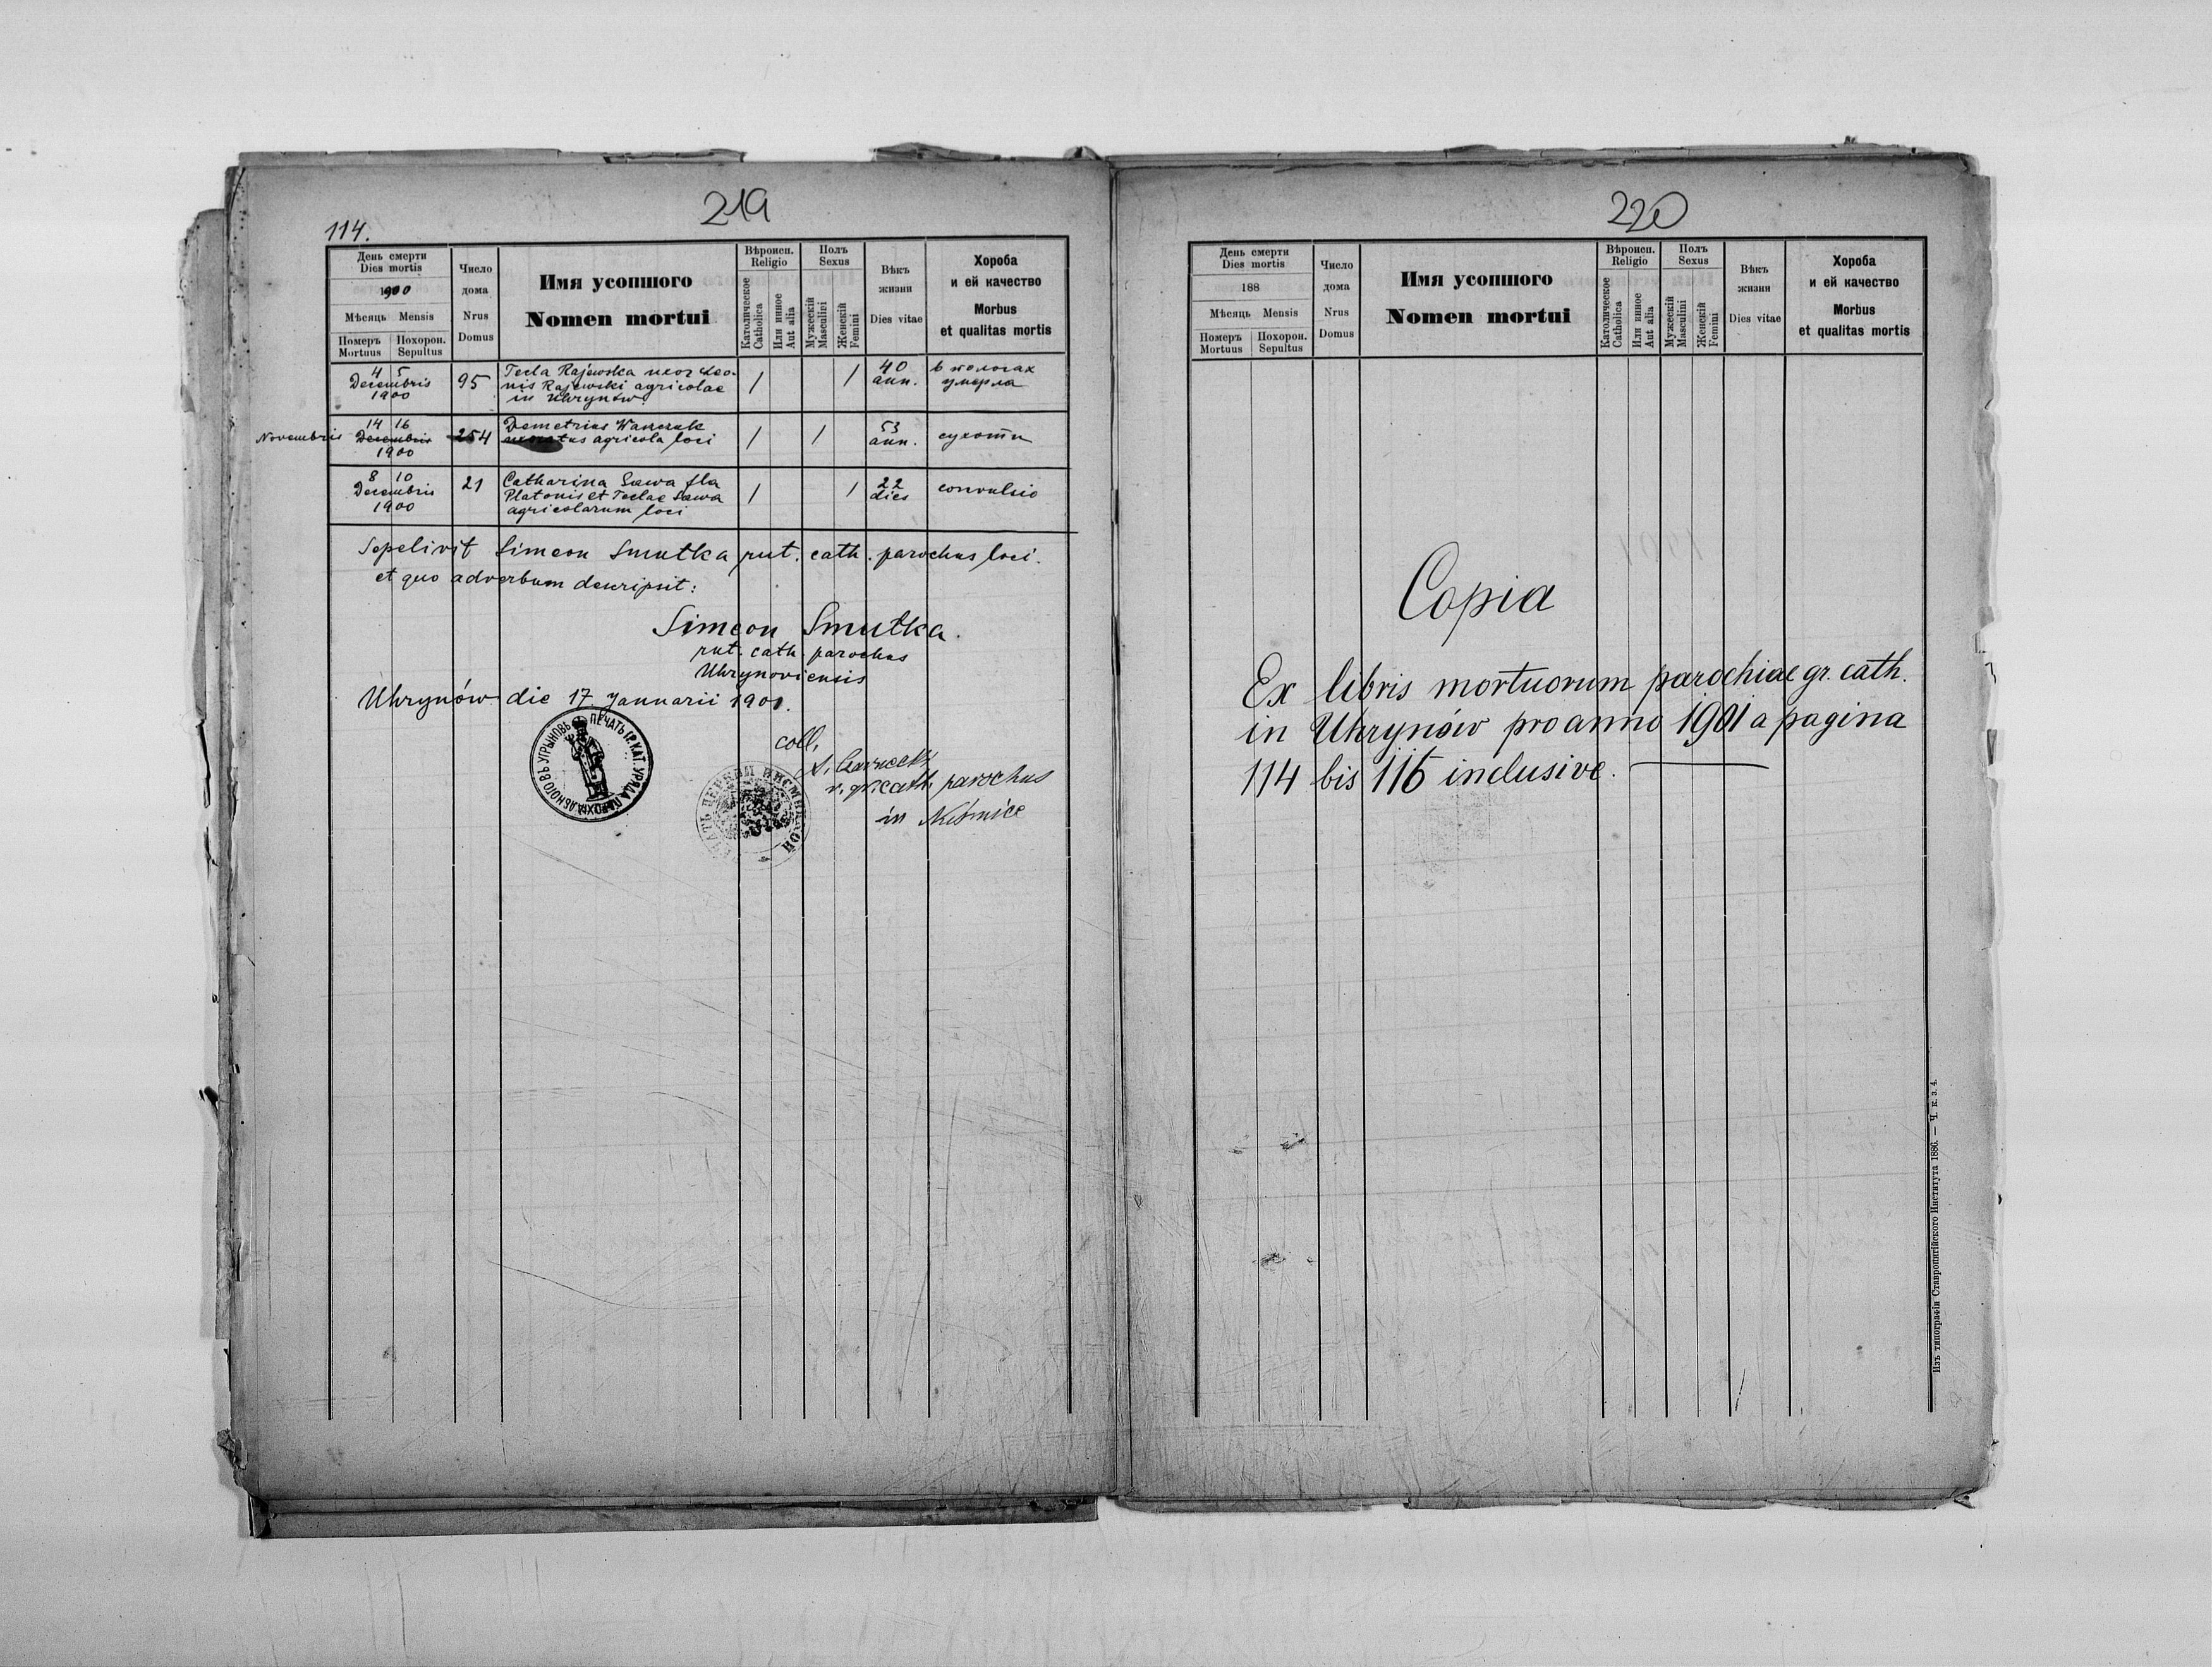 219
114.
День смерти
Dies mortis
1900
Мѣсяць Mensis
Померъ
Mortuus
Похорон.
Sepultus
Число
дома
Nrus
Domus
Имя усопшого
Nomen mortui
Вѣроисп.
Religio
Католическое
Catholica
Или инное
Aut alia
Полъ
Sexus
Мужескій
Masculini
Женскій
Femini
Вѣкъ
жизни
Dies vitae
Хороба
и ей качество
Morbus
et qualitas mortis
4 5
Decembris
1900
95
Tecla Rajewska uxor Leo-
nis Rajewski agricolae
in Uhrynów
1
1
40
ann.
в пологах
умерла
Novembris
14 16
Decembris
1900
254
Demetrius
agricola loci
1
1
53
ann.
сухоти
8 10
Decembris
1900
21
Catharina Sawa fla
Platonis et Teclae Sawa
agricolarum loci
1
1
22
dies
convulsio
Sepelivit Simeon Smutka rut. cath. parochus loci.
et quo ad verbum descripsit:
Simeon Smutka.
rut. cath. parochus
Uhrynoviensis
Uhrynów die 17 Januarii 1901.
ПЕЧАТЬ ГР. КАТ. УРЯДА ПАРОХІАЛЬНОГО ВЪ УГРЫНОВѢ
coll.
r. gr. cath. parochus
in
220
День смерти
Dies mortis
188
Мѣсяць Mensis
Померъ
Mortuus
Похорон.
Sepultus
Число
дома
Nrus
Domus
Имя усопшого
Nomen mortui
Вѣроисп.
Religio
Католическое
Catholica
Или инное
Aut alia
Полъ
Sexus
Мужескій
Masculini
Женскій
Femini
Вѣкъ
жизни
Dies vitae
Хороба
и ей качество
Morbus
et qualitas mortis
Copia
Ex libris mortuorum parochiae gr. cath.
in Uhrynów pro anno 1901 a pagina
114 bis 116 inclusive.
Изъ типографіи Ставропигійского Института 1886. — Ч. к. з. 4.